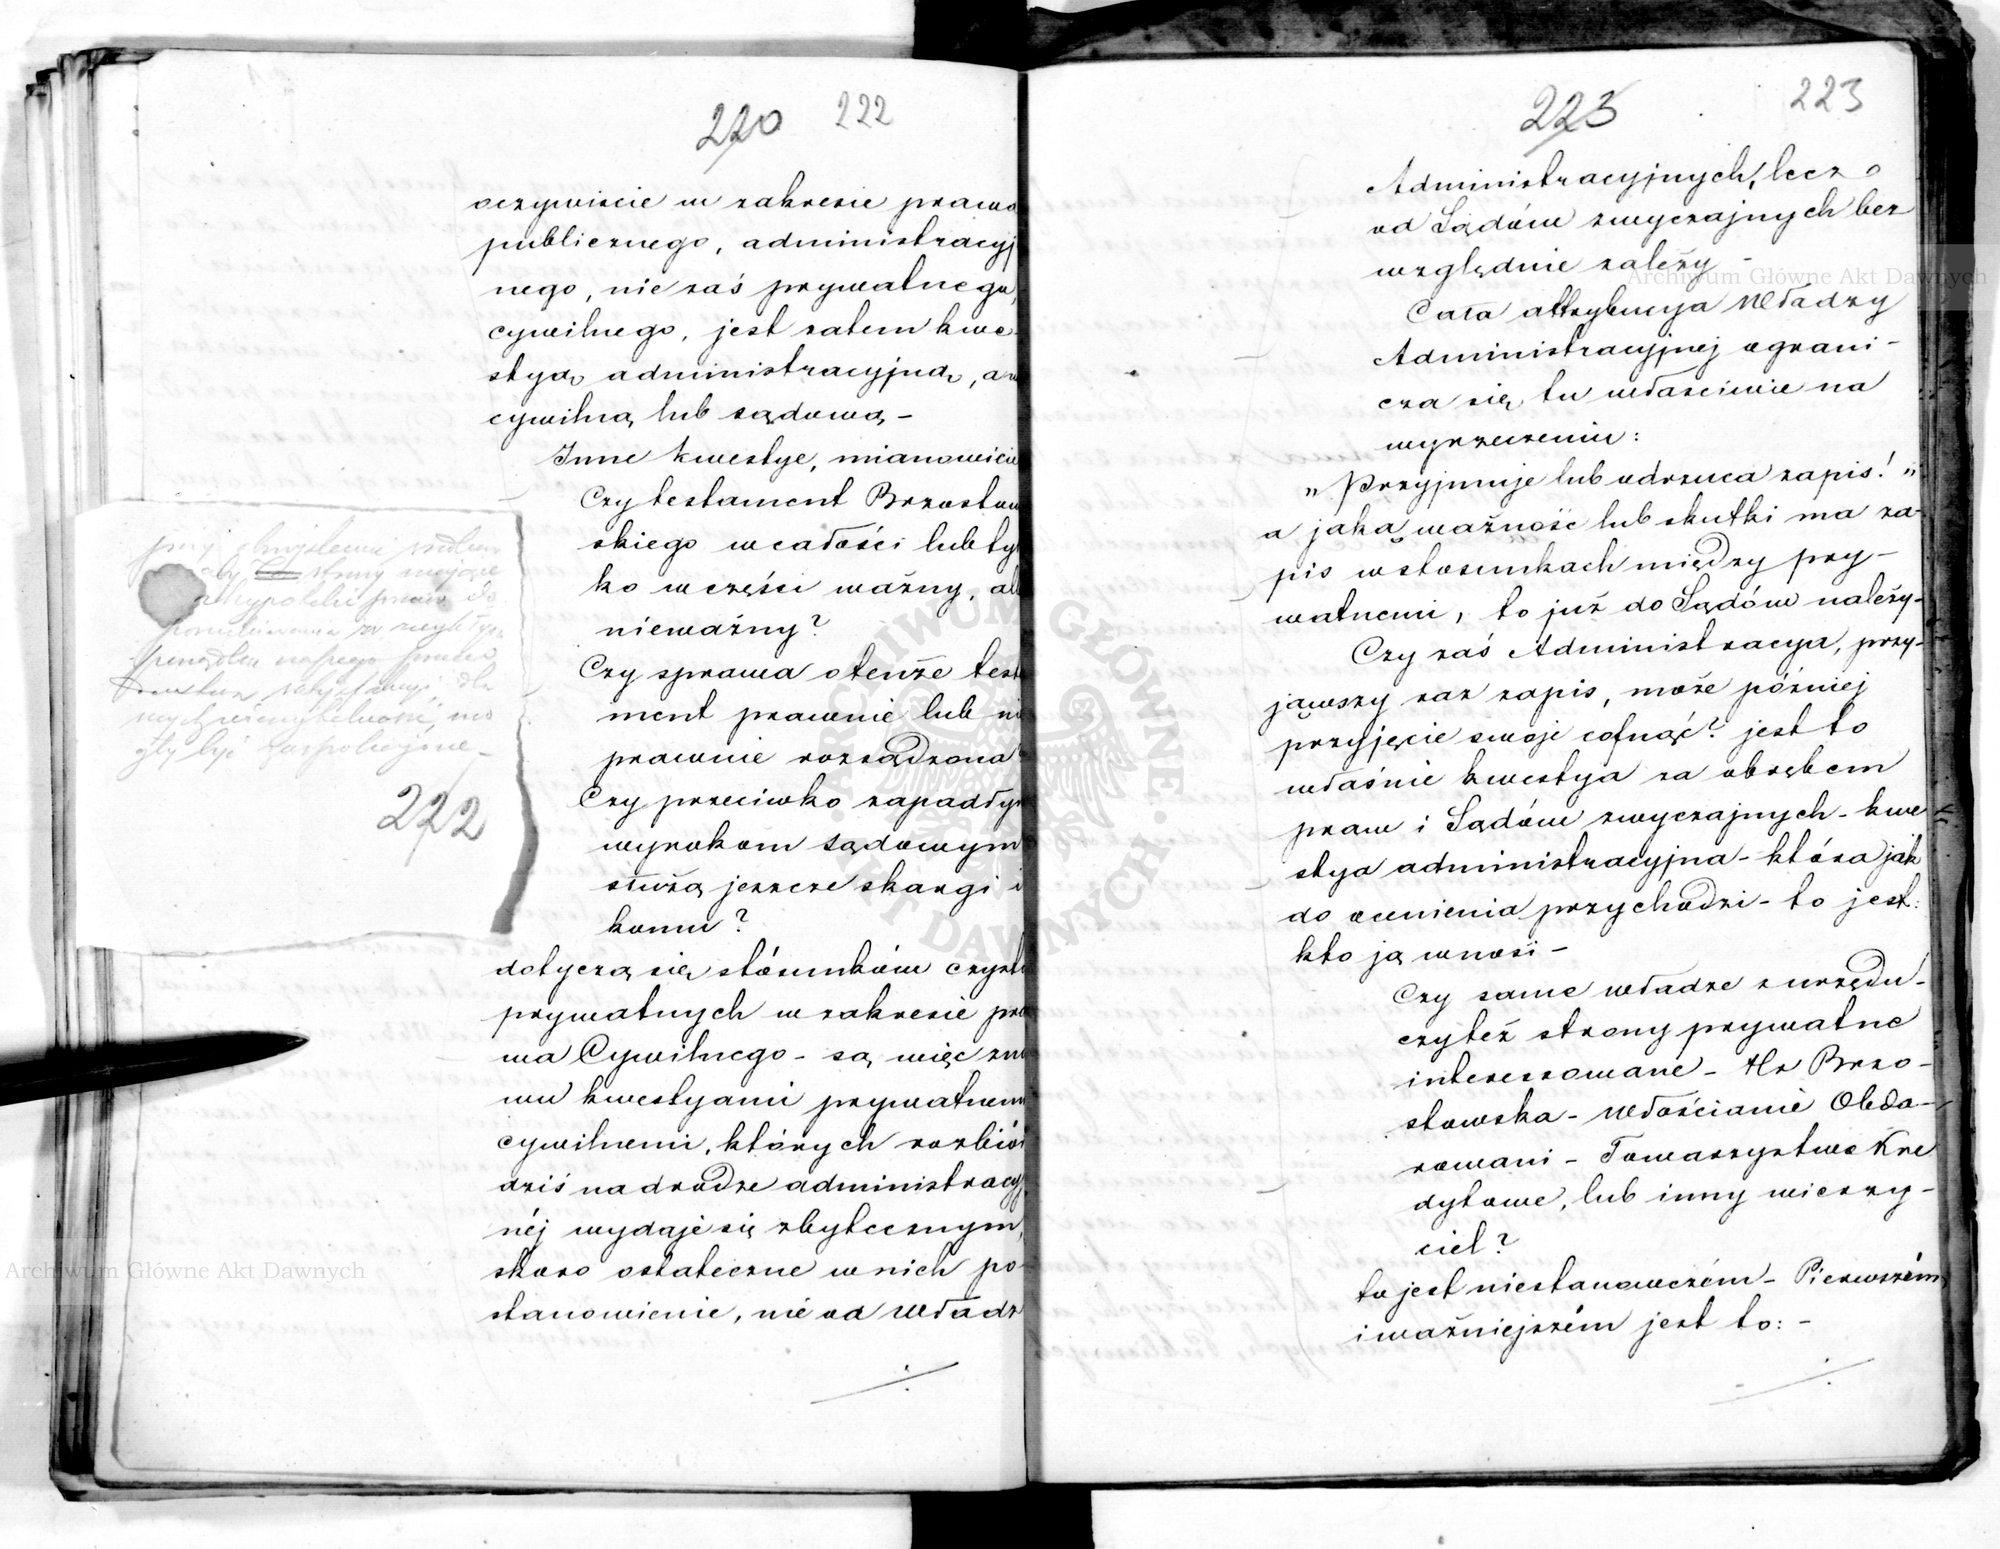 220 222
oczywiscie w zakresie prawa
publicznego, administracyj
nego, nie zaś prywatnego,
cywilnego, jest zatem kwe-
styą administracyjną, a nie
cywilną lub sądową -
Inne kwestye, mianowicie
Czy testament Brzostow
skiego w całości lub tyl
ko w części ważny, al
nieważny?
Czy sprawa o tenże testa
ment prawnie lub nie
prawnie rozsądzona
Czy przeciwko zapadłym
wyrokom sądowym
służą jeszcze skargi i
komu?
dotyczą się stósunków czysto
prywatnych w zakresie pra
wa Cywilnego - są więc zno
wu kwestyami prywatnemi
cywilnemi, których rozbiór
dziś na drodze administracyj
néj wydaje się zbytecznym,
skoro ostateczne w nich po-
stanowienie, nie od Władz
aby strony mające
222
223 223
Administracyjnych, lecz
od Sądów zwyczajnych bez
względnie zależy -
Cała attrybucya Władzy
Administracyjnej ograni-
cza się tu właściwie na
wyrzeczeniu:
„Przyjmuje lub odrzuca zapis!"
a jaką ważność lub skutki ma za-
pis w stosunkach między pry-
watnemi, to już do Sądów należy -
Czy zaś Administracya, przy-
jąwszy raz zapis, może później
przyjęcie swoje cofnąć? jest to
właśnie kwestya za obrębem
praw i Sądów zwyczajnych - kwe
stya administracyjna - która jak
do ocenienia przychodzi - to jest:
kto ją wnosi -
Czy same władze z urzędu -
czyteż strony prywatne
interessowane - Hr Brzo-
stowska - Włościanie Obda-
rowani - Towarzystwo Kre
dytowe, lub inny wierzy-
ciel?
to jest niestanowczém - Pierwszém
i ważniejszém jest to: -
Archiwum Główne Akt Dawnych
Archiwum Główne Akt Dawnych
ARCHIWUM GŁÓWNE AKT DAWNYCH